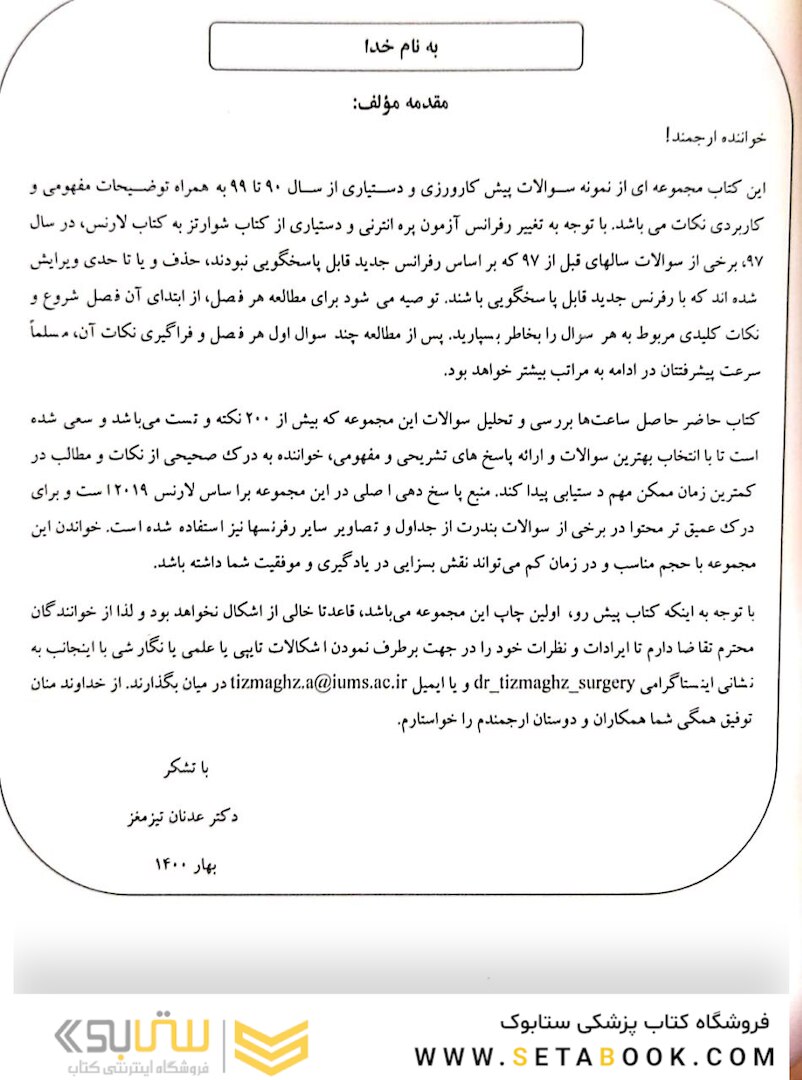 به نام خدا
مقدمه مؤلف:
خواننده ارجمند!
این کتاب مجموعه ای از نمونه سوالات پیش کارورزی و دستیاری از سال ۹۰ تا ۹۹ به همراه توضیحات مفهومی و
کاربردی نکات می باشد. با توجه به تغییر رفرانس آزمون پره انترنی و دستیاری از کتاب شوارتز به کتاب لارنس، در سال
۹۷، برخی از سوالات سالهای قبل از ۹۷ که بر اساس رفرانس جدید قابل پاسخگویی نبودند، حذف و یا تا حدی ویرایش
شده اند که با رفرنس جدید قابل پاسخگویی باشند. توصیه می شود برای مطالعه هر فصل، از ابتدای آن فصل شروع و
نکات کلیدی مربوط به هر سوال را بخاطر بسپارید. پس از مطالعه چند سوال اول هر فصل و فراگیری نکات آن، مسلماً
سرعت پیشرفتتان در ادامه به مراتب بیشتر خواهد بود.
کتاب حاضر حاصل ساعت‌ها بررسی و تحلیل سوالات این مجموعه که بیش از ۲۰۰ نکته و تست می‌باشد و سعی شده
است تا با انتخاب بهترین سوالات و ارائه پاسخ های تشریحی و مفهومی، خواننده به درک صحیحی از نکات و مطالب در
کمترین زمان ممکن مهم دستیابی پیدا کند. منبع پاسخ دهی اصلی در این مجموعه براساس لارنس ۲۰۱۹ است و برای
درک عمیق تر محتوا در برخی از سوالات بندرت از جداول و تصاویر سایر رفرنسها نیز استفاده شده است. خواندن این
مجموعه با حجم مناسب و در زمان کم می‌تواند نقش بسزایی در یادگیری و موفقیت شما داشته باشد.
با توجه به اینکه کتاب پیش رو، اولین چاپ این مجموعه می‌باشد، قاعدتا خالی از اشکال نخواهد بود و لذا از خوانندگان
محترم تقاضا دارم تا ایرادات و نظرات خود را در جهت برطرف نمودن اشکالات تایپی یا علمی یا نگارشی با اینجانب به
نشانی اینستاگرامی dr_tizmaghz_surgery و یا ایمیل tizmaghz.a@iums.ac.ir در میان بگذارند. از خداوند منان
توفیق همگی شما همکاران و دوستان ارجمندم را خواستارم.
با تشکر
دکتر عدنان تیزمغز
بهار ۱۴۰۰
فروشگاه کتاب پزشکی ستابوک
WWW.SETABOOK.COM
ستابوک
فروشگاه اینترنتی کتاب